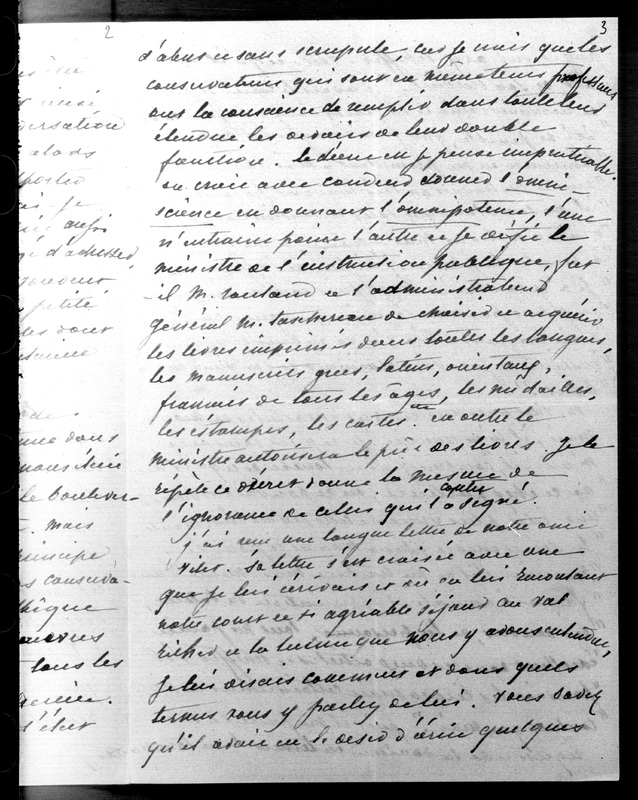 2
3
d'abus et sans scrupule, car je mois que les
conservateurs qui sont en même temps professeurs
ont la conscience de remplir dans toute leur
étendue les devoirs de leur double
fonction. le décret en je pense impraticable.
on croit avec condend donner l'omni-
science en donnant l'omnipotence, l'une
n'entraine point l'autre et je défie le
ministre de l'instruction publique, fut
-il M. rouland et l'administrateur
général M. taschereau de choisir et acquérir
les livres imprimés dans toutes les langues,
les manuscrits grecs, latins, orientaux,
français de tous les âges, les médailles,
les estampes, les cartes. en outre le
ministre autorisera le prêt des livres. Je le
répète ce décret donne la mesure de
l'ignorance de celui qui l'a contre signé.
j'ai reçu une longue lettre de notre ami
Vitet. Sa lettre s'est croisée avec une
que je lui écrivais et où en lui racontant
notre court et si agréable séjour au Val
Richer et la lecture que nous y avons entendue,
je lui disais comment et dans quels
termes vous y parlez de lui. Vous savez
qu'il avait eu le désir d'écrire quelques
versation
petite
les dont
dans
le boulever-
mais
principe
conserva-
tous les